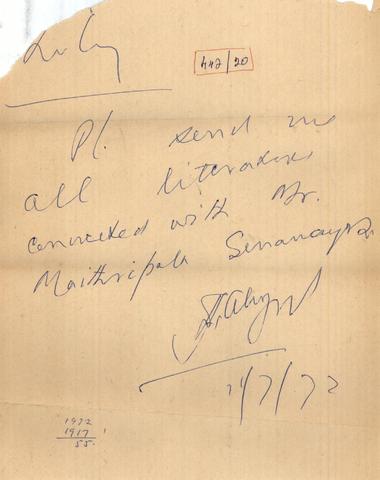 442/20
Pl. send me
all literature
connected with Mr.
Maithripala Senanayake
/7/72
1972
1917
55.